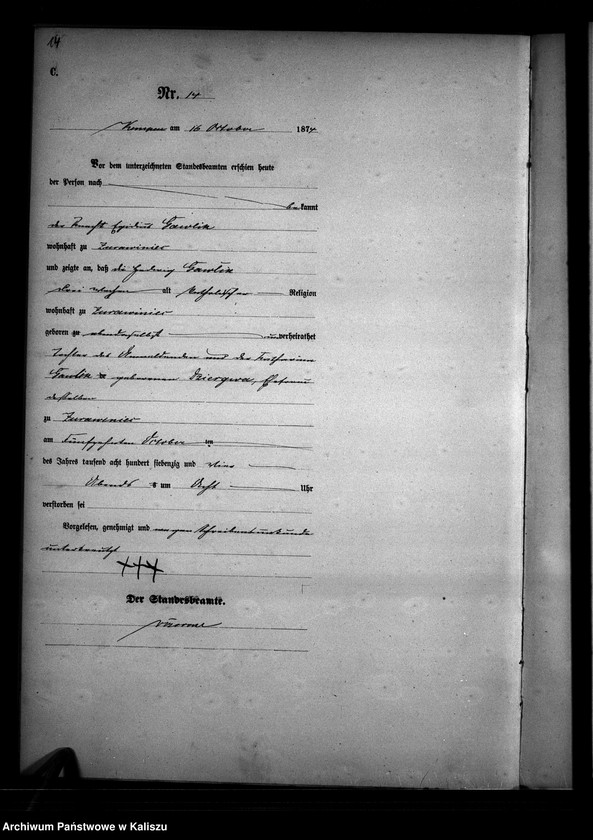 14
C.
Nr. 14
Kempen am 16 October 1874
Vor dem unterzeichneten Standesbeamten erschien heute
der Person nach
bekannt
der Knecht Gawlik
wohnhaft zu Zurawiniec
und zeigte an, daß die Hedwig Gawlik
drei Wochen alt katholischer Religion
wohnhaft zu Zurawiniec
geboren zu ebendaselbst unverheirathet
Tochter des Anmeldenden und der Catharina
Gawlik geborenen Dziergwa, Ehefrau
desselben
zu Zurawiniec
am fünfzehnten October
des Jahres tausend acht hundert siebenzig und vier
Abends um Acht Uhr
verstorben sei
Vorgelesen, genehmigt und wegen Schreibensunkunde
unterkreuzt
+++
Der Standesbeamte.
Archiwum Państwowe w Kaliszu